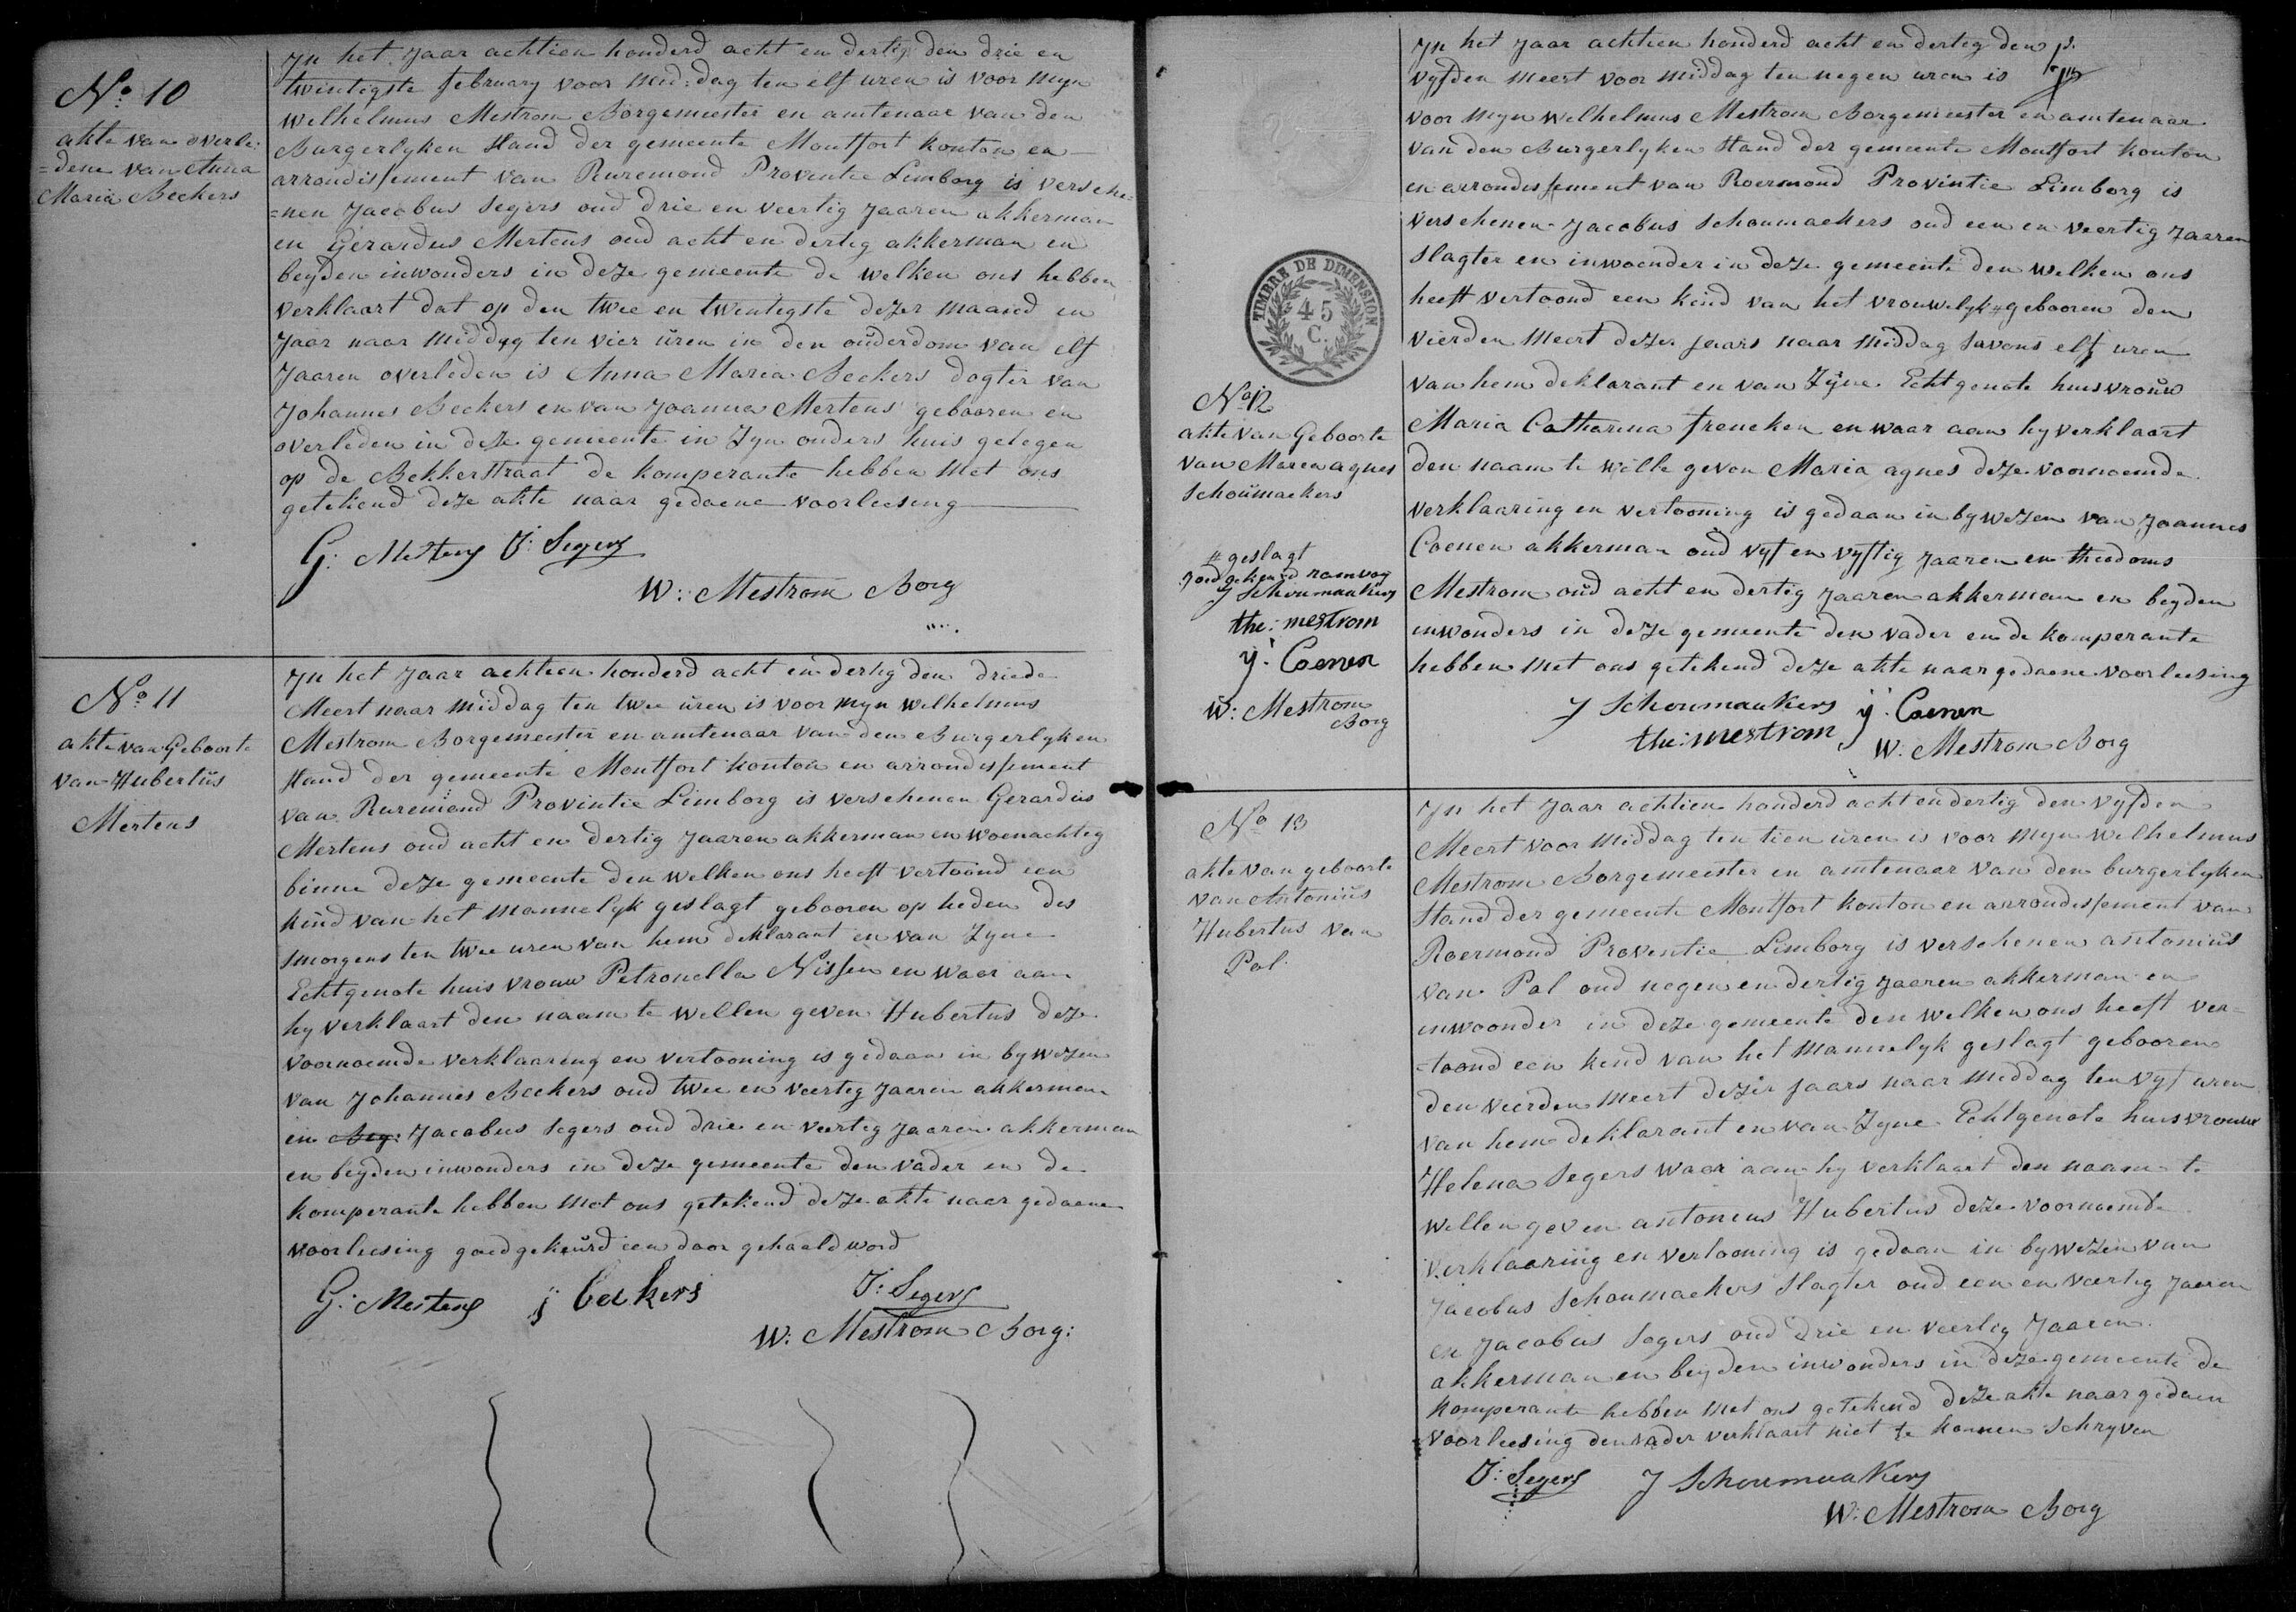 No. 10
akte van overle:
=dene van Anna
Maria Beckers
Jn het Jaar achtien honderd acht en dertig den drie en
twintigste february voor mid:dag ten elf uren is voor myn
Welhelmus Mestrom Borgemeester en amtenaar van den
Burgerlyken Stand der gemeente Montfort konton en
arrondissement van Ruremond Proventie Limborg is versche=
=nen Jacobus Segers oud drie en veertig Jaaren akkerman
en Gerardus Mertens oud acht en dertig akkerman en
beyden inwonders in deze gemeente de welken ons hebben
verklaart dat op den twee en twentegste dezer maand en
Jaar naar middag ten vier üren in den oüderdom van elf
Jaaren overleden is Anna Maria Beckers dogter van
Johannes Beckers en van Joanna Mertens gebooren en
overleden in deze gemeente in Zyn ouders huis gelegen
op de Bekkerstraat de komperante hebben met ons
getekend deze akte naar gedaene voorleesing
G: Mertens J: Segers
W: Mestrom Borg
No. 11
akte van Geboorte
van Hubertüs
Mertens
Jn het Jaar achtien honderd acht en dertig den driede
Meert naar middag ten twee üren is voor myn Welhelmus
Mestrom Borgemeester en amtenaar van den Burgerlyken
Stand der gemeente Montfort konton en arrondissement
van Ruremond Provintie Limborg is verschenen Gerardüs
Mertens oud acht en dertig Jaaren akkerman en woenachteg
binne deze gemeente den welken ons heeft vertoond een
kind van het mannelyk geslagt gebooren op heden des
smorgens ten twee uren van hem deklarant en van Zyne
Echtgenote huis vrouw Petronella Nissen en waar aan
hy verklaart den naam te wellen geven Hubertus deze
voornoemde verklaaring en vertooning is gedaan in bywezen
van Johannes Beckers oud twee en veerteg Jaaren akkerman
en Bey: Jacobus Segers oud drie en veerteg Jaaren akkerman
en beyden inwonders in deze gemeente den vader en de
komperante hebben met ons getekend deze akte naar gedaene
voorleesing goedgekeürd een door gehaald word
G: Mertens j: beckers J: Segers
W: Mestrom Borg:
TIMBRE DE DIMENSION
45
C.
No 12
akte van Geboorte
van Marea agnes
Schoümaekers
# geslagt
J Schoumaukers
the: mestrom
y: Coenen
W: Mestrom
Borg
Jn het Jaar achtien honderd acht en derteg den
vyfden meert voor middag ten negen uren is
voor myn Welhelmus Mestrom Borgemeester en amtenaar
van den Burgerlyken Stand der gemeente Montfort konton
en arrondissement van Roermond Provintie Limborg is
verschenen Jacobus Schoumaekers oud een en veertig Jaaren
slagter en inwoender in deze gemeente den welken ons
heeft vertoond een kend van het vrouwelyk # gebooren den
vierden meert dezer Jaars naar middag savens elf uren
van hem deklarant en van Zyne Echtgenote huis vrouw
Maria Catharina frencken en waar aan hy verklaart
den naam te wille geven Maria agnes deze voornoemde
verklaaring en vertooning is gedaan in bywezen van Joannes
Coenen akkerman oud vyf en vyftig Jaaren en theodorus
Mestrom oüd acht en dertig Jaaren akkerman en beyden
inwonders in deze gemeente den vader en de komperante
hebben met ons getekend deze akte naar gedaene voorleesing
J Schoumaukers y: Coenen
the: mestrom
W: Mestrom Borg
No 13
akte van geboorte
van Antoniüs
Hubertus van
Pol
Jn het Jaar achtien honderd acht en dertig den vyfden
Meert voor middag ten tien üren is voor myn Welhelmus
Mestrom Borgemeester en amtenaar van den burgerlyken
Stand der gemeente Montfort konton en arrondissement van
Roermond Proventie Limborg is verschenen antoniüs
van Pol oud negen en dertig Jaaren akkerman en
inwoonder in deze gemeente den welken ons heeft ver=
=toond een kend van het mannelyk geslagt gebooren
den veerden meert dezer Jaars naar middag ten vyf uren
van hem deklarant en van Zyne Echtgenote huis vrouw
Helena Segers waar aan hy verklaart den naam te
wellen geven antoneus Hubertus deze voornoemde
verklaaring en vertooning is gedaan in bywezen van
Jacobus Schoumaekers slagter oud een en veerteg Jaaren
en Jacobus Segers oud drie en veerteg Jaaren
akkerman en beyden inwonders in deze gemeente de
komperante hebben met ons getekend deze akte naar gedaen
voorleesing den vader verklaart niet te konnen schryven
J: Segers J Schoumaakers
W: Mestrom Borg